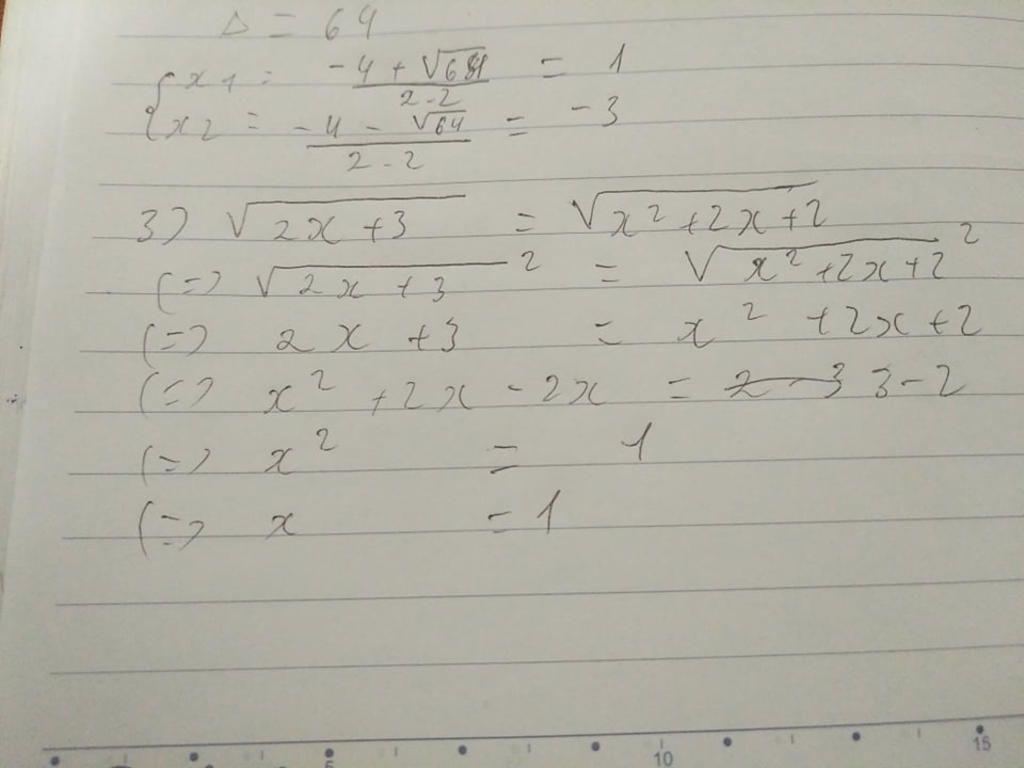 Δ = 64
{ x1 = (-4 + √64)/(2-2) = 1
{ x2 = (-4 - √64)/(2-2) = -3
3) √(2x+3) = √(x²+2x+2)
(=) √(2x+3)² = √(x²+2x+2)²
(=) 2x+3 = x²+2x+2
(=) x²+2x-2x = 2-3 3-2
(=) x² = 1
(=) x = 1
5 10 15